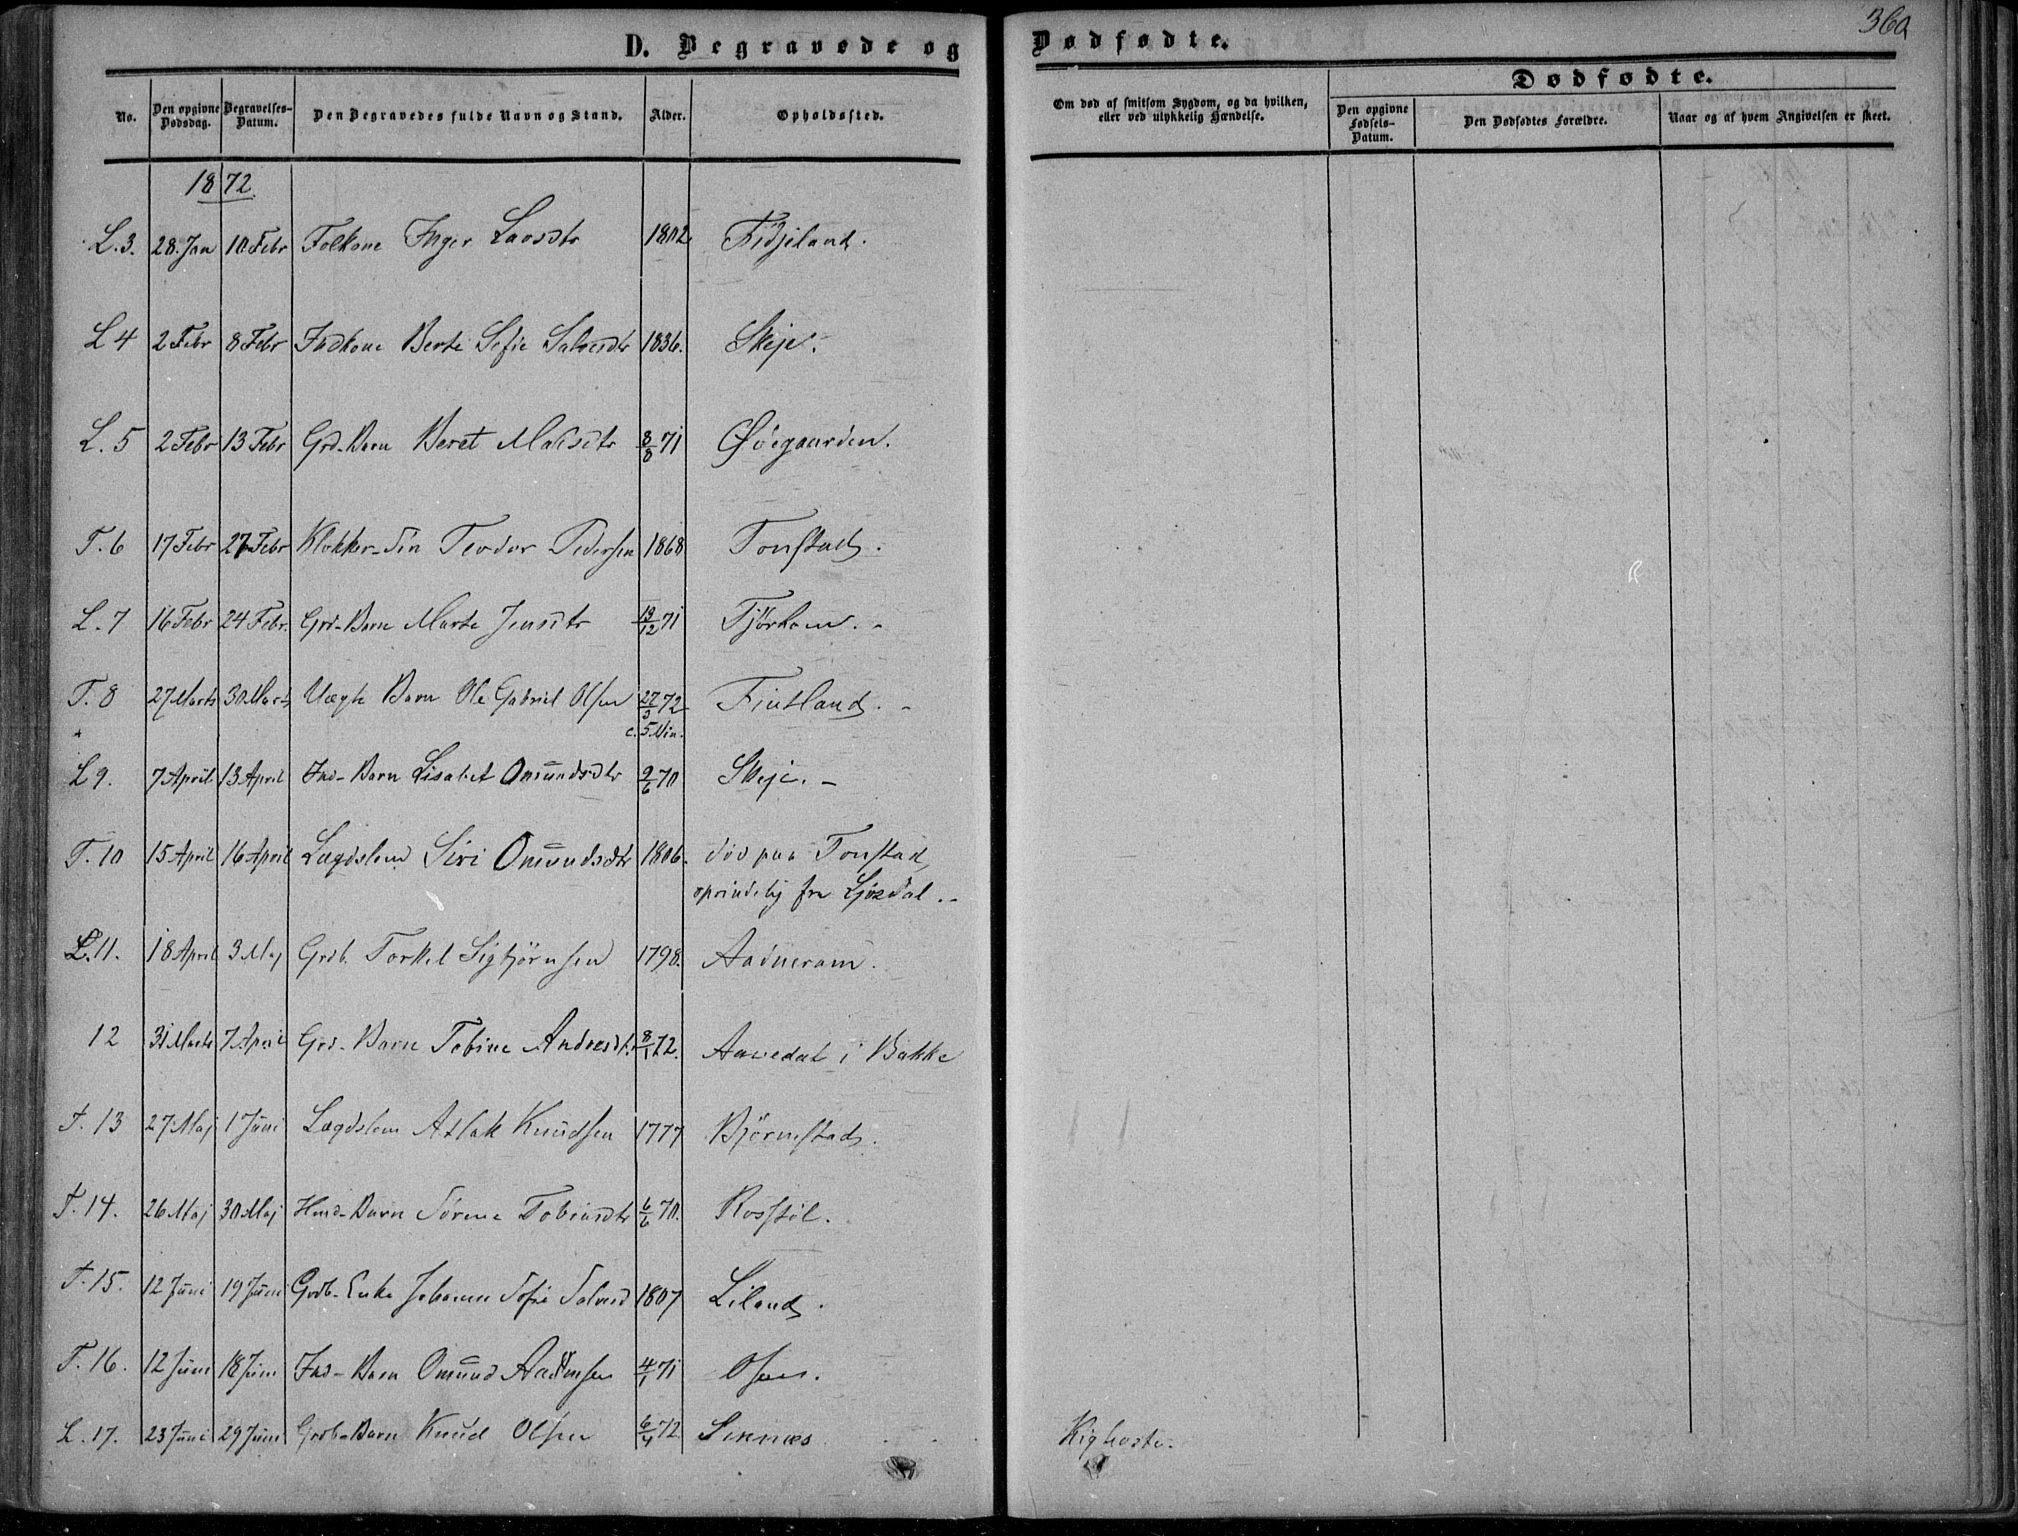 360
D. Begravede og Dødfødte.
Dødfødte.
No. Den opgivne Dødsdag. Begravelses-Datum. Den Begravedes fulde Navn og Stand. Alder. Opholdssted. Om død af smitsom Sygdom, og da hvilken, eller ved ulykkelig Hændelse. Den opgivne Fødsels-Datum. Den Dødfødtes Forældre. Naar og af hvem Angivelsen er skeet.
1872.
L. 3. 28. Jan 10. Febr Folkone Inger Laosdtr 1802. Fidjeland.
L 4 2 Febr 8 Febr Indkone Berte Sefie Salvesdtr 1836. Skeje.
L. 5 2 Febr 13 Febr Grd-Barn Beret 8/8 71 Øiegaarden.
T. 6 17 Febr 27 Febr Klokker-Søn Teodor Pedersen 1868 Tonstad.
L. 7 16 Febr 24 Febr. Grd-Barn Marte Jensdtr 19/12 71 Tjørhom. -
T. 8 27 Marts 30 Marts Uægte Barn Ole Gabriel Olsen 27/3 72 Fintland. -
c. 5 Min.
L 9. 7 April 13 April Ind-Barn Lisabet Omundsdtr 9/6 70 Skeje. -
T. 10 15 April 16 April Lægdslem Siri Omundsdtr 1806. død paa Tonstad,
oprindelig fra Gjøsdal. -
L. 11. 18 April 3 Maj Grdb. Torkel Sigbjørnsen 1798. Aadneram.
12 31 Marts 7 April Grd-Barn Tobine Andreasdtr 8/1 72. Aavedal i Bakke
T. 13 27 Maj 1 Juni Lægdslem Aslak Knudsen 1777 Bjørnestad.
T. 14. 26 Maj 30 Maj Hmd-Barn Sørine Tobiasdtr 6/6 70. Rosstøl.
T. 15. 12 Juni 19 Juni Grdb-Enke Johanne Sofie Salvesd 1807 Liland.
T. 16. 12 Juni 18 Juni Ind-Barn Omund Aadnesen 4/1 71 Osen.
L. 17. 23 Juni 29 Juni Grdb-Barn Knud Olsen 6/4 72 Sinnæs Kighoste.